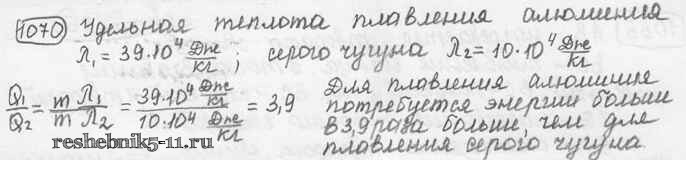 1070 Удельная теплота плавления алюминия
λ₁ = 39·10⁴ Дж/кг; серого чугуна λ₂ = 10·10⁴ Дж/кг
Q₁/Q₂ = m λ₁/m λ₂ = 39·10⁴ Дж/кг / 10·10⁴ Дж/кг = 3,9
Для плавления алюминия
потребуется энергии больши
в 3,9 раза больши, чем для
плавления серого чугуна.
reshebnik5-11.ru